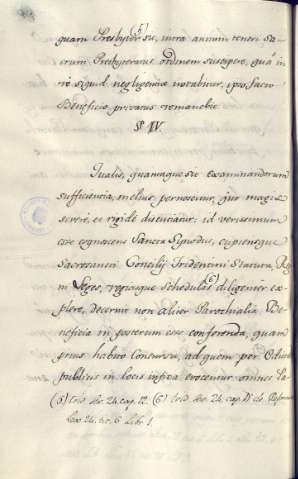 quam Presbyter (5) sit, intra annum teneri Sa-
crum Presbyteratus ordinem suscipere, qua in
re siquid negligentia notabitur, ipso facto
Beneficio privatus remanebit.
§ IV.
Qualis, quantaque sit examinandorum
sufficientia, melius pernoscitur, quo magis
serio, et rigide discutiatur: id verissimum
esse cognoscens Sancta Synodus, cupiensque
Sacrosancti Concilij Tridentini Statuta,
Leges, regiasque Schedulas (6) diligenter ex-
plere, decernit non aliter Parochialia Be-
neficia in posterum esse conferenda, quam
prius habito Concursu, ad quem per Edicta
publica in locis infra vocentur omnes
(5) trid. ses. 24. cap. 12. (6) trid. ses. 24. cap. 18. de Reform.
Ley 24. tit. 6 Lib. 1